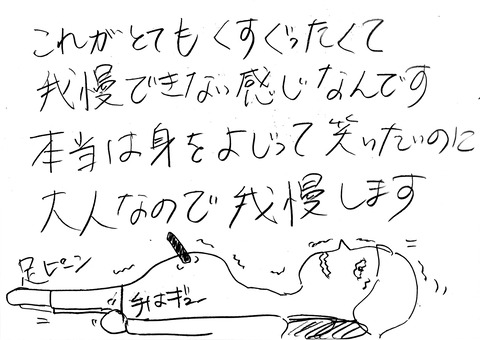 これがとてもくすぐったくて
我慢できない感じなんです
本当は身をよじって笑いたいのに
大人なので我慢します
足ピーン
手はギュー